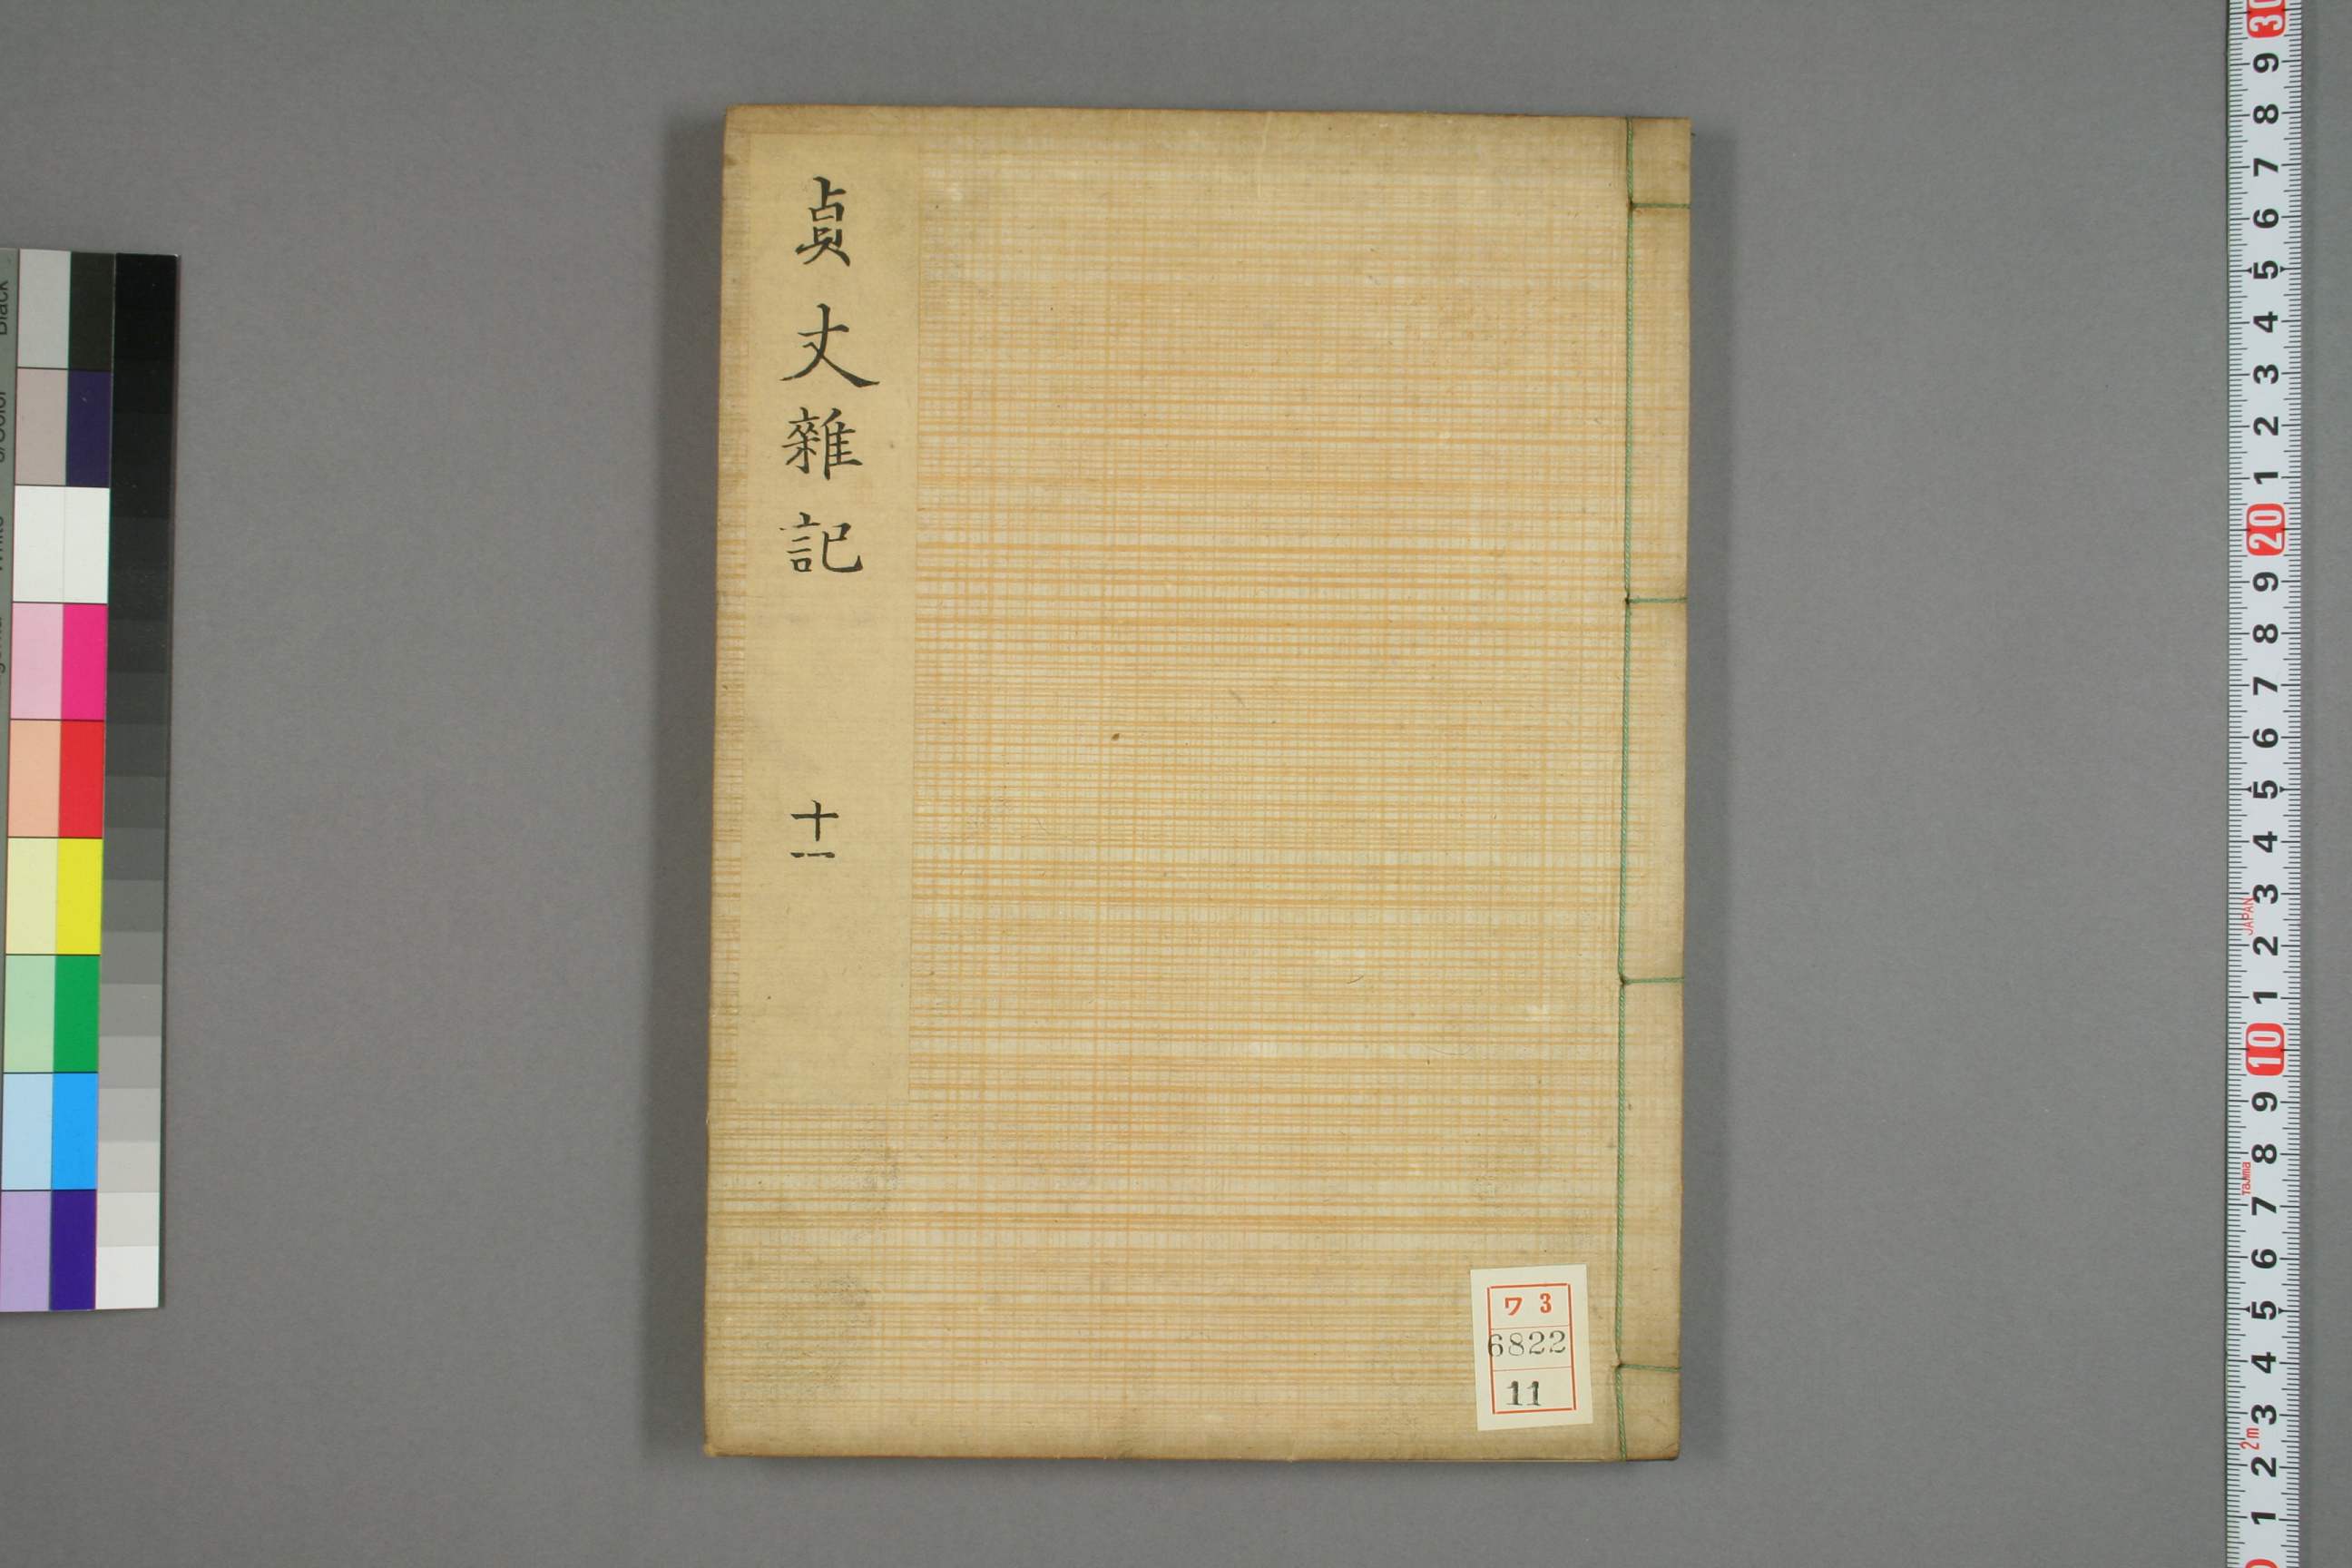 貞丈雜記
十一
ワ 3
6822
11
Black
30
9
8
7
6
5
4
3
2
1
20
9
8
7
6
5
4
3
JAPAN
2
1
10
9
8
Tajima
7
6
5
4
3
2m
2
1